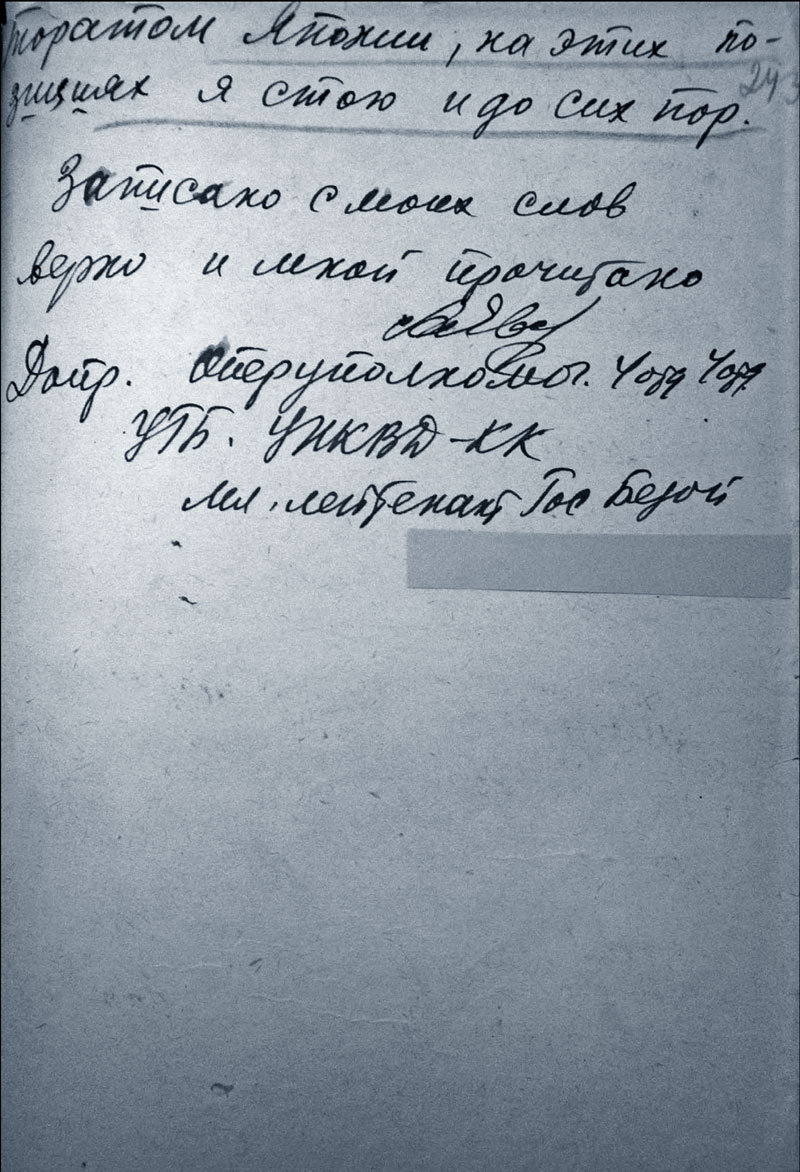 торатом Японии, на этих по-
зициях я стою и до сих пор.
24
Записано с моих слов
верно и мной прочитано
Допр. Оперуполномоч. 4 отд 4 отд.
УГБ. УНКВД-КК
мл. лейтенант Гос Безоп